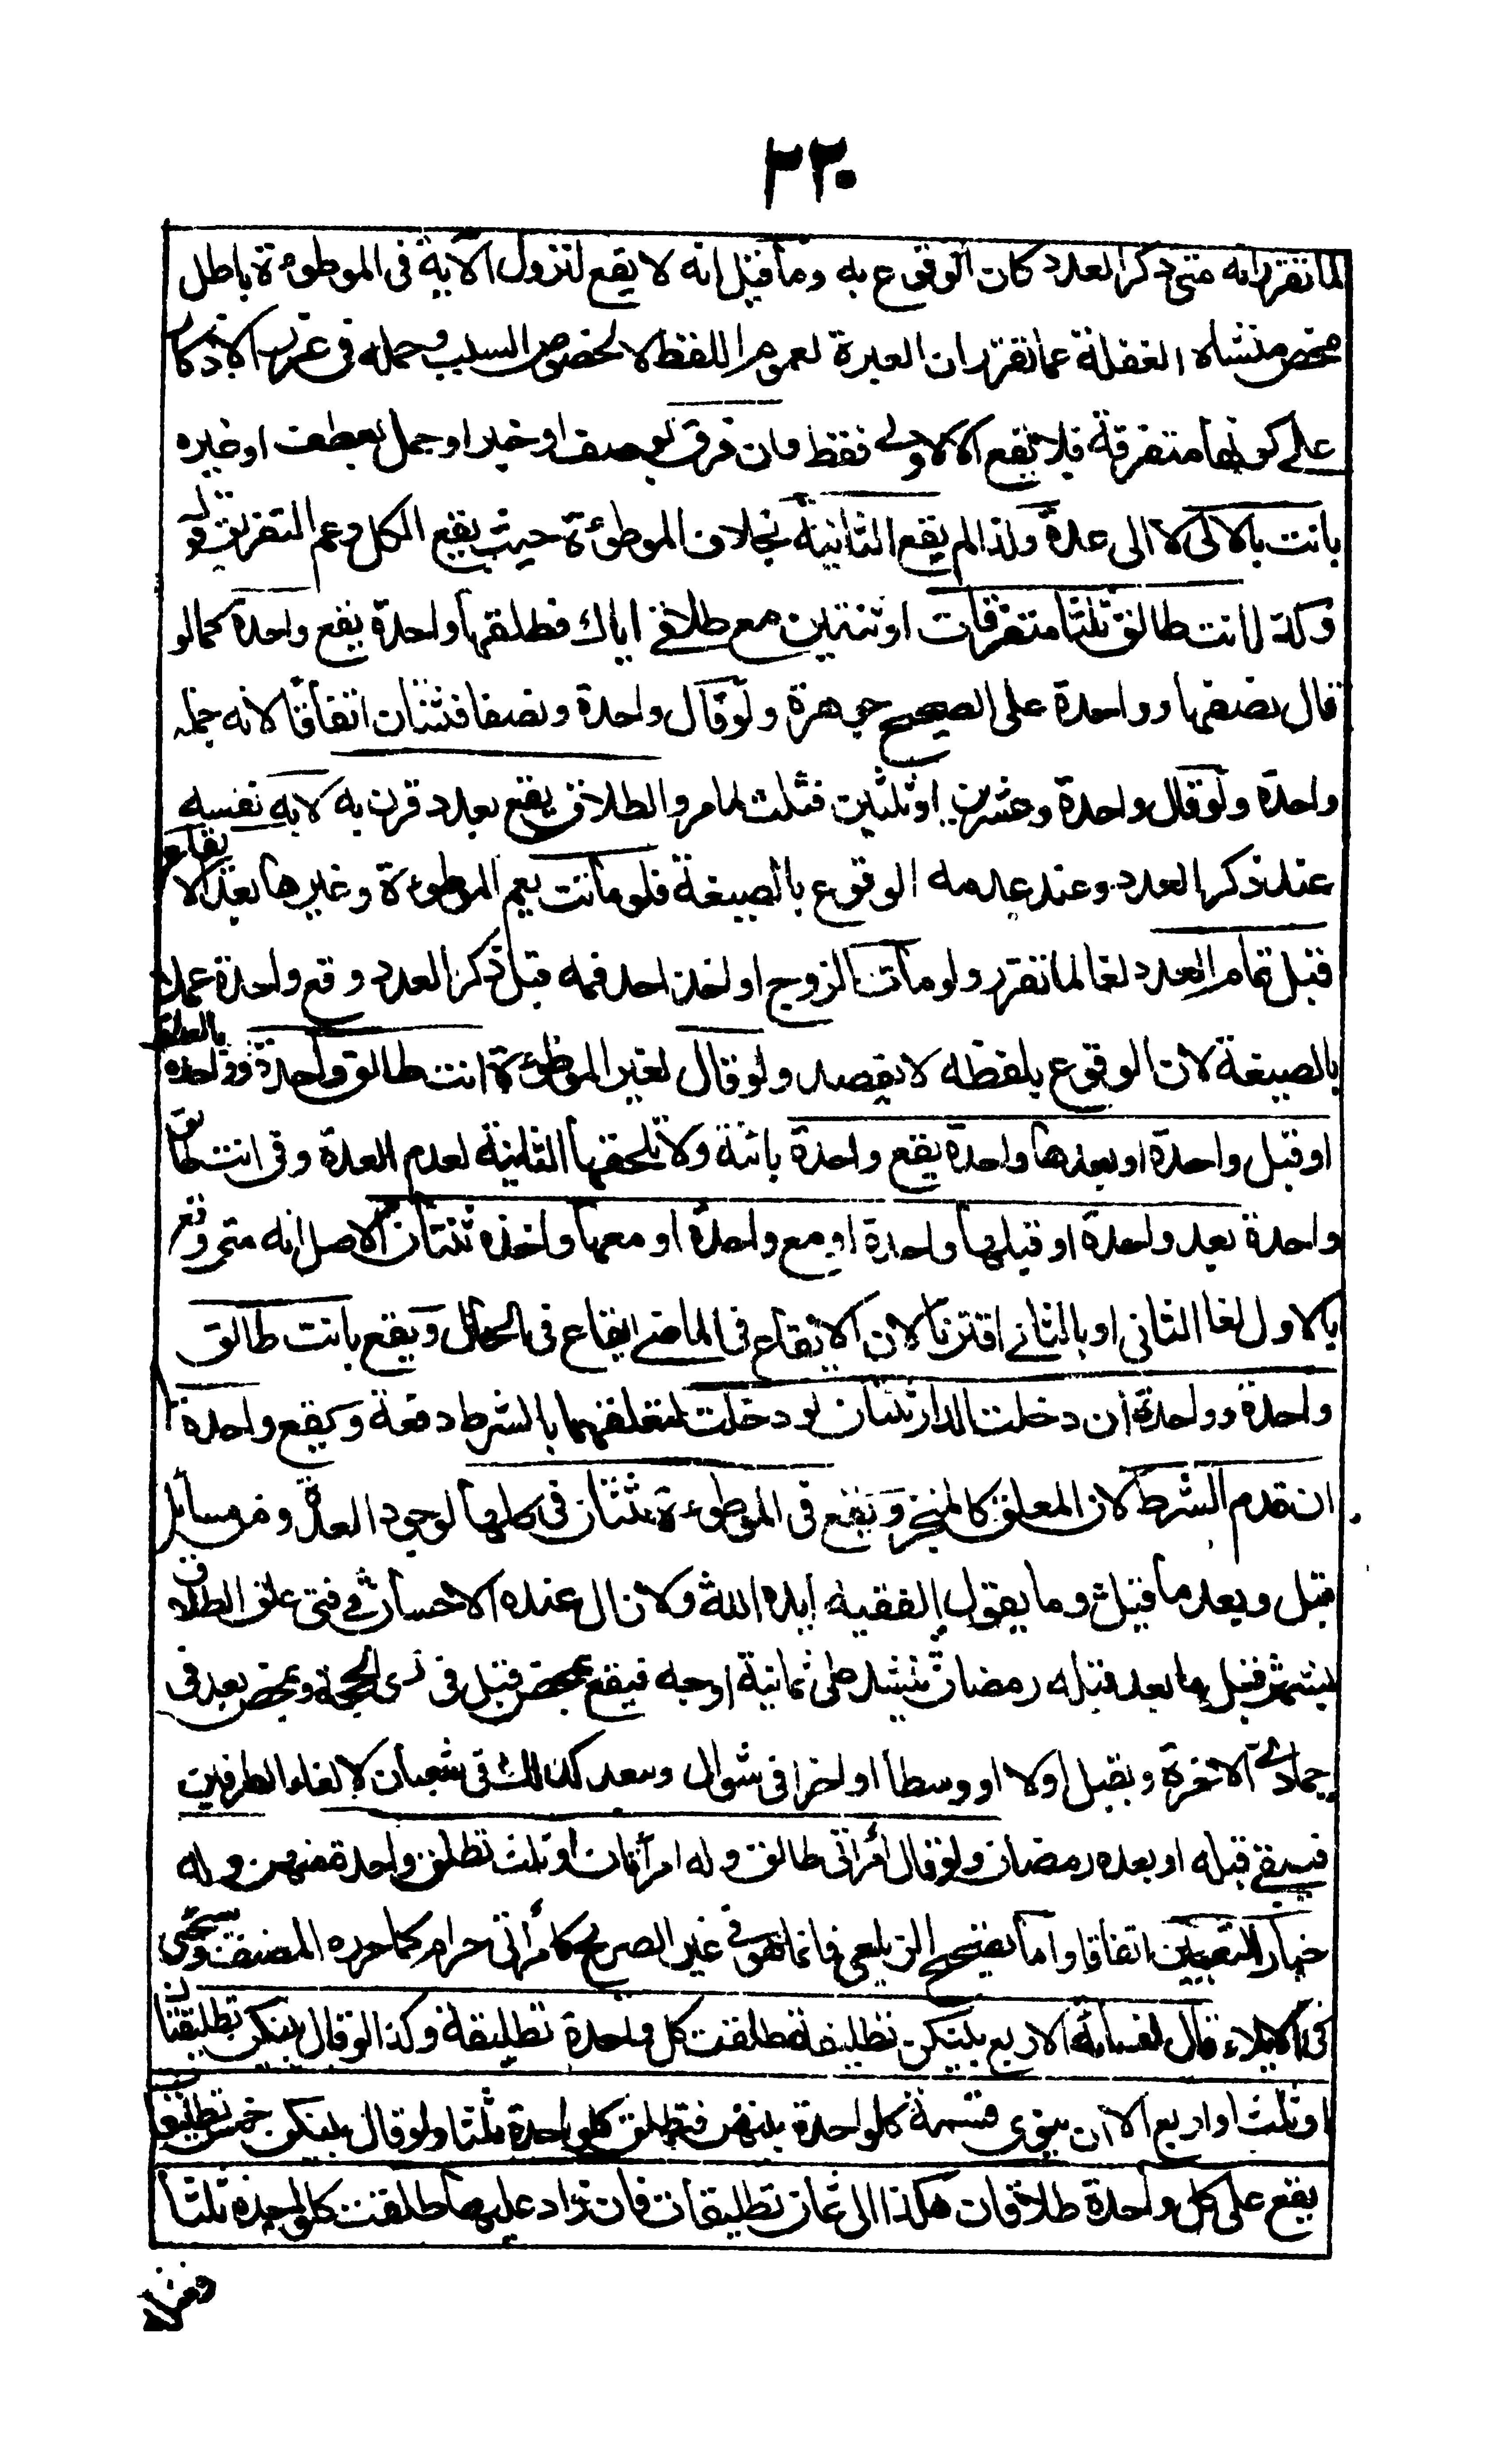 ٢٢٠
لما تقرر انه متى ذكر العدد كان الوقوع به وما قيل انه لا يقع لنزول الآية فى الموطوءة باطل
محض منشاه الغفلة عما تقرر ان العبرة لعموم اللفظ لا لخصوص السبب وحمله فى غرر الاذكار
على كونها متفرقة فلا يقع الا الاولى فقط وان فرق بوصف او خبر او جمل بعطف او غيره
بانت بالاولى لا الى عدة ولذا لم يقع الثانية بخلاف الموطوءة حيث يقع الكل وعم التفريق قوله
وكذا انت طالق ثلثا متفرقات او ثنتين مع طلاقى اياك فطلقها واحدة يقع واحدة كما لو
قال نصفها وواحدة على الصحيح جوهرة ولو قال واحدة ونصفا فثنتان اتفاقا لانه جملة
واحدة ولو قال واحدة وعشرين او ثلثين فثلث لما مر والطلاق يقع بعدد قرن به لا به نفسه
عند ذكر العدد وعند عدمه الوقوع بالصيغة فلو ماتت يعم الموطوءة وغيرها بعد الايقاع
قبل تمام العدد لغا لما تقرر ولو مات الزوج او اخذ احد فمه قبل ذكر العدد وقع واحدة عملا
بالصيغة لان الوقوع بلفظه لا بقصده ولو قال لغير الموطوءة انت طالق واحدة وواحدة بالعطف
او قبل واحدة او بعدها واحدة يقع واحدة بائنة ولا تلحقها الثانية لعدم العدة وفى انت طالق
واحدة بعد واحدة او قبلها واحدة او مع واحدة او معها واحدة ثنتان الاصل انه متى وقع
بالاول لغا الثانى او بالثانى اقترنا لان الايقاع فى الماضى ايقاع فى الحال ويقع بانت طالق
واحدة وواحدة ان دخلت الدار ثنتان لو دخلت لتعلقهما بالشرط دفعة ويقع واحدة
ان تقدم الشرط لان المعلق كالمنجز ويقع فى الموطوءة ثنتان فى كلها لوجود العدة ومن مسائل
قبل وبعد ما قيل شعر وما يقول الفقيه ايده الله ولا زال عنده الاحسان فى فتى علق الطلاق
بشهر قبل ما بعد قبله رمضان ينشد على ثمانية اوجه فيقع بمحض قبل فى ذى الحجة وبمحض بعد فى
جمادى الاخرة وبقبل اولا او وسطا او اخرا فى شوال وببعد كذلك فى شعبان لالغاء الطرفين
فيبقى قبله او بعده رمضان ولو قال امرأتى طالق وله امرأتان او ثلث تطلق واحدة منهن وله
خيار التعيين اتفاقا واما تصحيح الزيلعى فانما هو فى غير الصريح كامرأتى حرام كما حرره المصنف وسيجئ
فى الايلاء قال لنسائه الاربع بينكن تطليقة طلقت كل واحدة تطليقة وكذا لو قال بينكن تطليقتان
او ثلث او اربع الا ان ينوى قسمة كل واحدة بينهن فتطلق كل واحدة ثلثا ولو قال بينكن خمس تطليقات
يقع على كل واحدة طلاقان هكذا الى ثمان تطليقات فان زاد عليها طلقت كل واحدة ثلثا